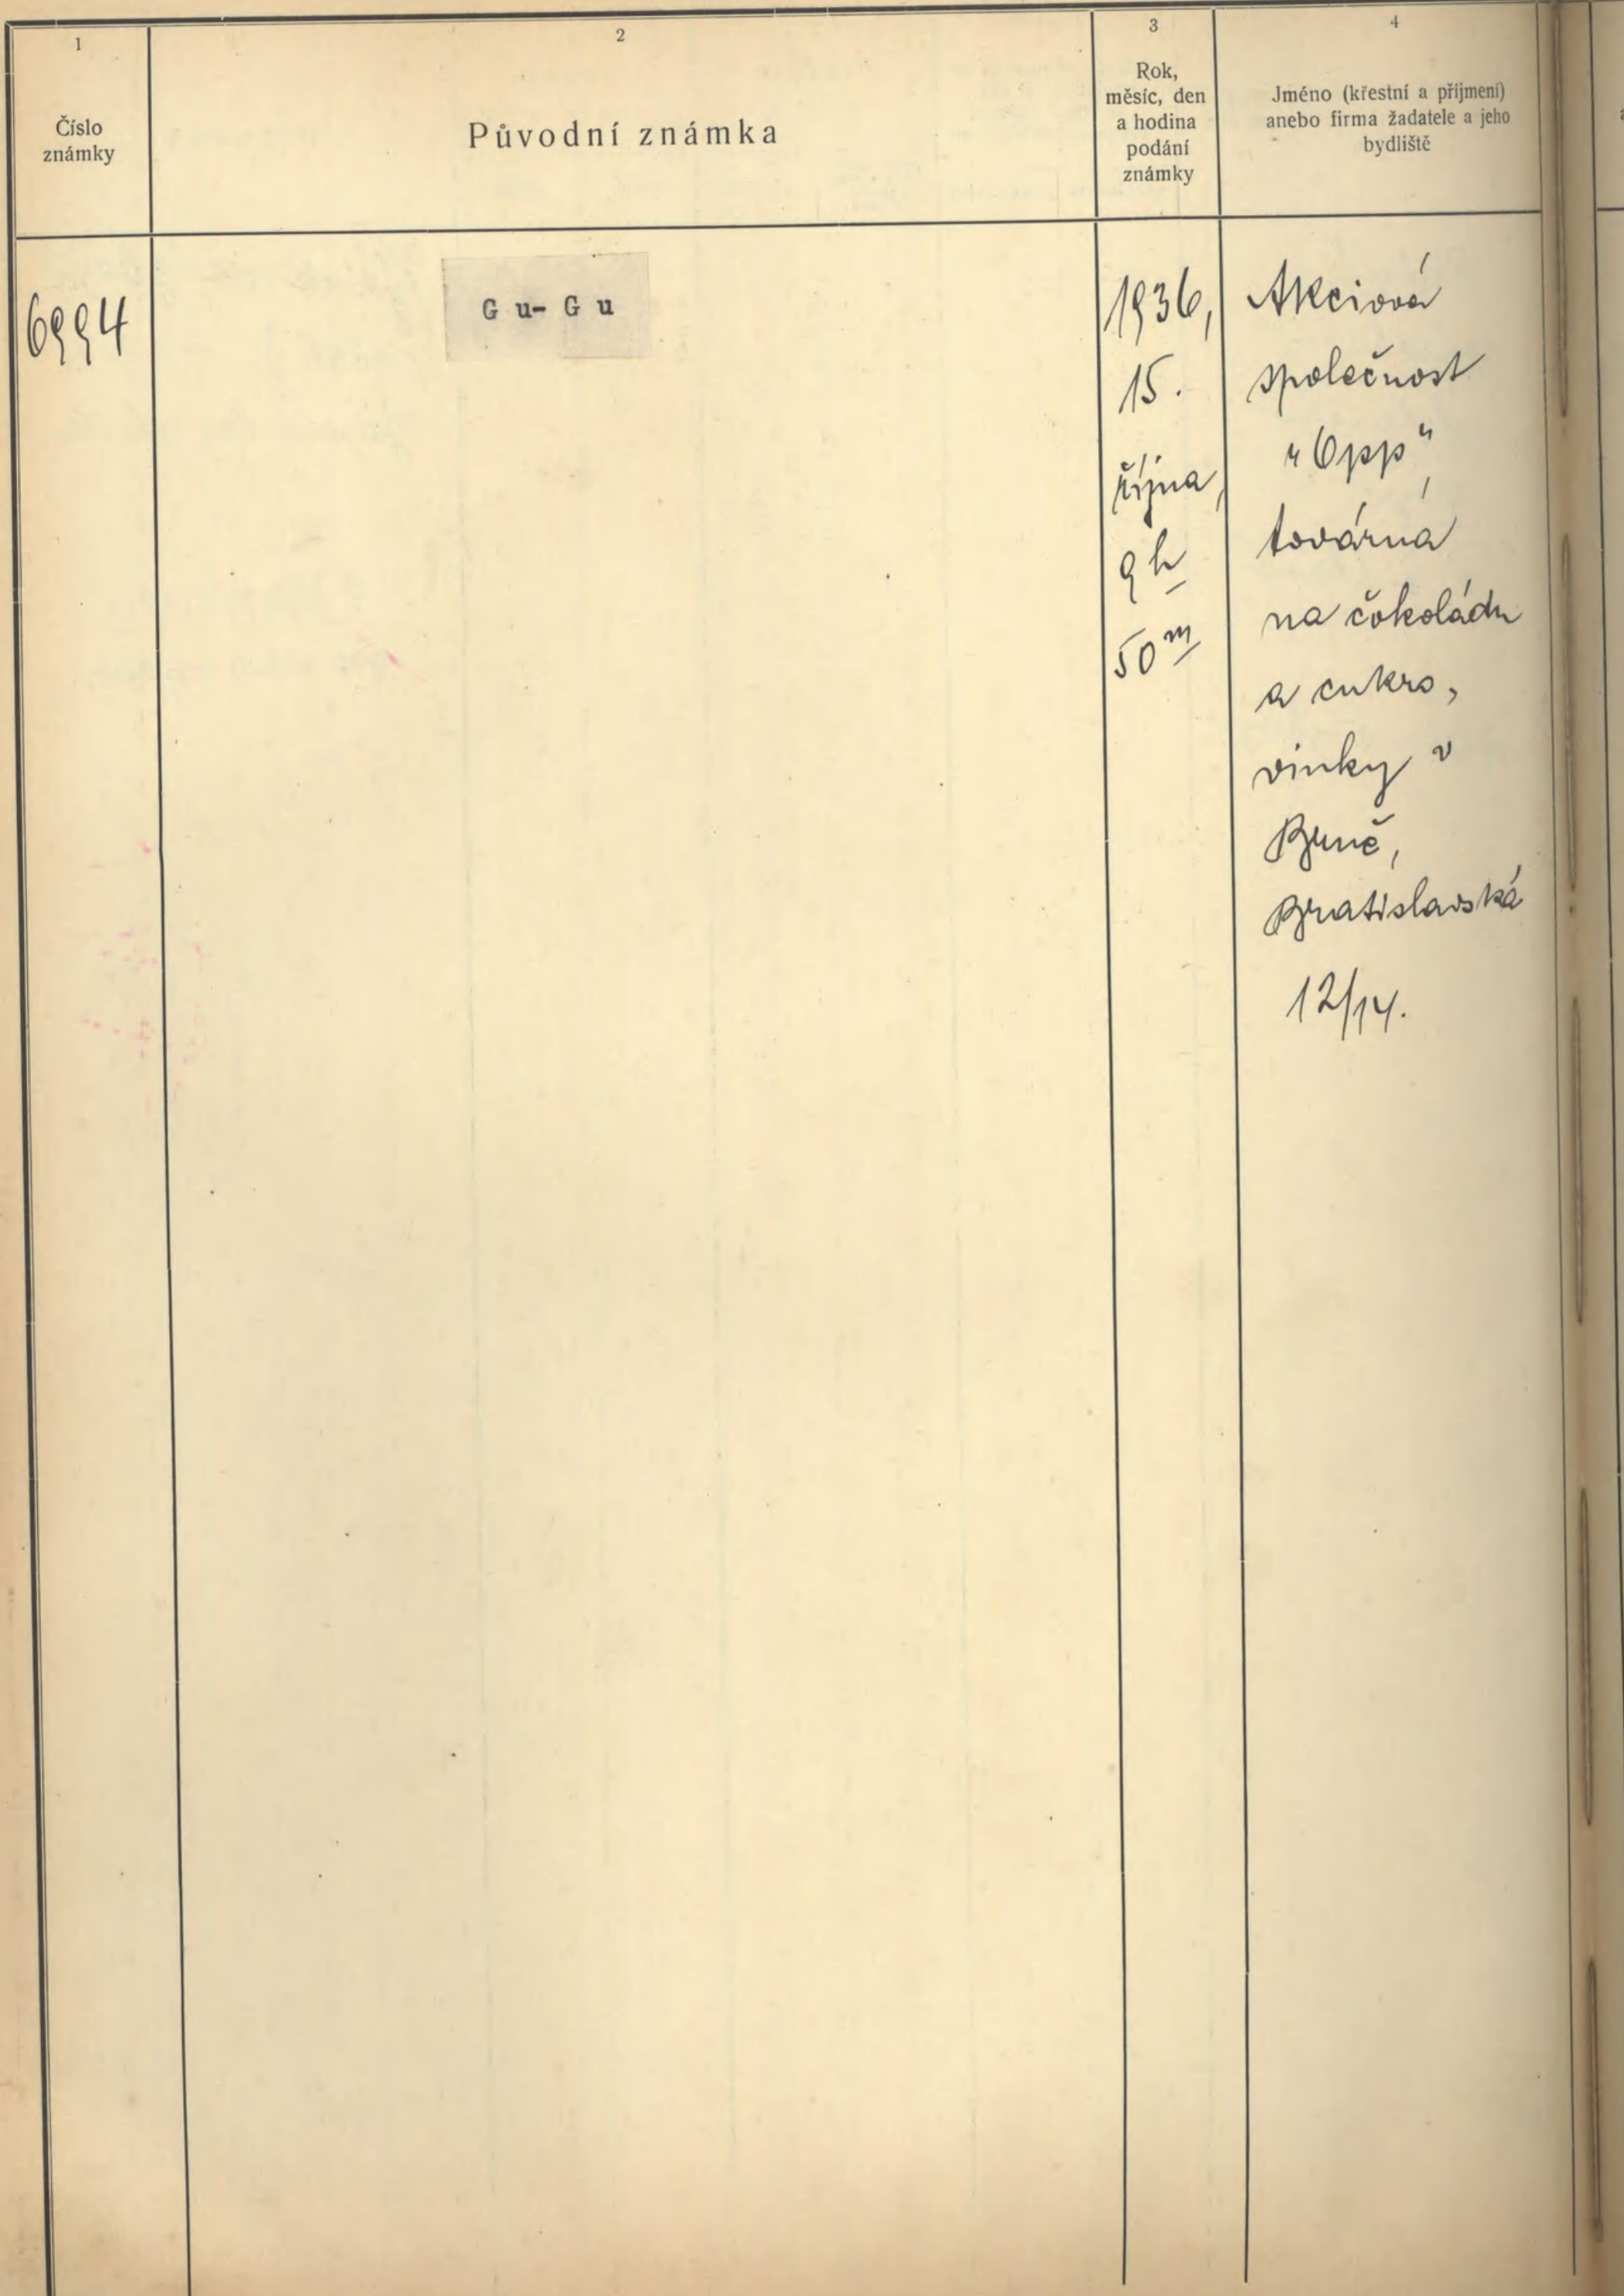 1
Číslo
známky
2
Původní známka
3
Rok,
měsíc, den
a hodina
podání
známky
4
Jméno (křestní a příjmení)
anebo firma žadatele a jeho
bydliště
6994
Gu-Gu
1936,
15.
října,
9h
50m
Akciová
společnost
"Opp",
továrna
na čokoládu
a cukro,
vinky v
Brně,
Bratislavská
12/14.